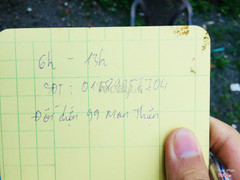 6h - 13h
SĐT :
Đối diện 99 Man Thiện